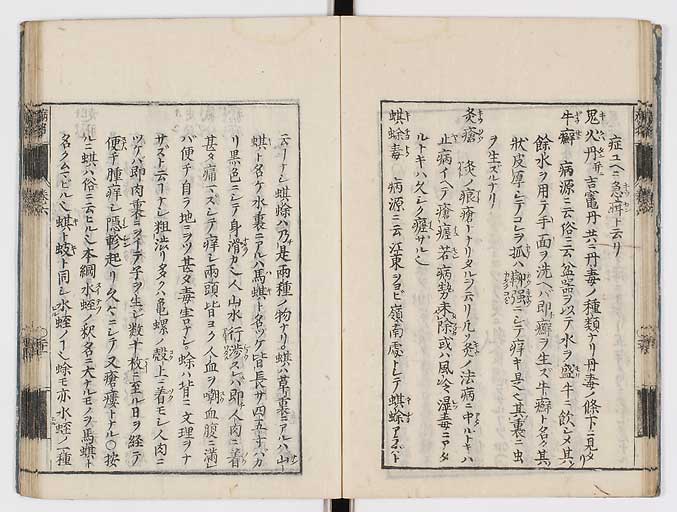 症ユヘニ急疳ト云リ
鬼火丹 并吉竈丹共ニ丹毒ノ種類ナリ丹毒ノ條下ニ見タリ
牛癬 病源ニ云俗ニ云盆器ヲ以テ水ヲ盛牛ニ飲シメ其
餘水ヲ用テ手面ヲ洗ヘバ即癬ヲ生ズ牛癬ト名ク其
狀皮厚シテコレヲ抓バ 強ニシテ痒キ是ヘ其裏ニ虫
ヲ生ズルナリ
灸瘡 灸ノ痕瘡トナリタルヲ云リ凡ソ灸ノ法病ニ中ルトキハ
止病イヘテ瘡瘥若病勢未除或ハ風冷濕毒ニアタ
ルトキハ久シク瘥ザル也
蜞蜍毒 病源ニ云江東ヲヨビ嶺南處トシテ蜞蜍アラズト
云フナシ蜞蜍ハ乃是兩種ノ物ナリ蜞ハ草裏ニアルハ山
蜞ト名ケ水裏ニアルハ馬蜞ト名ヅケ皆長サ四五寸バカ
リ黒色ニシテ身滑カ也人山水行渉スレバ即人肉ニ着
甚タ痛マズシテ痒シ兩頭皆ヨク人血ヲ嗍血腹ニ滿レ
バ便チ自ラ地ニヲツ甚タ毒害ナシ蜍ハ背ニ文理ヲナ
サズト云フナシ粗澁リ多クハ亀螺ノ殻上ニ着モシ人肉ニ
ツケバ即肉裏ニヲイテ子ヲ生ジ數十枚ニ至ル日ヲ經テ
便チ腫痒シ隱軫起リ久ヘニシテ又瘡瘻トナル○按ス
ルニ蜞ハ俗ニ云ヒル也本綱水蛭ノ釈名ニ大ナルモノヲ馬蜞ト
名クムマビル也蜞ト蚑ト同シ水蛭ノ 也蜍モ亦水蛭ノ一種